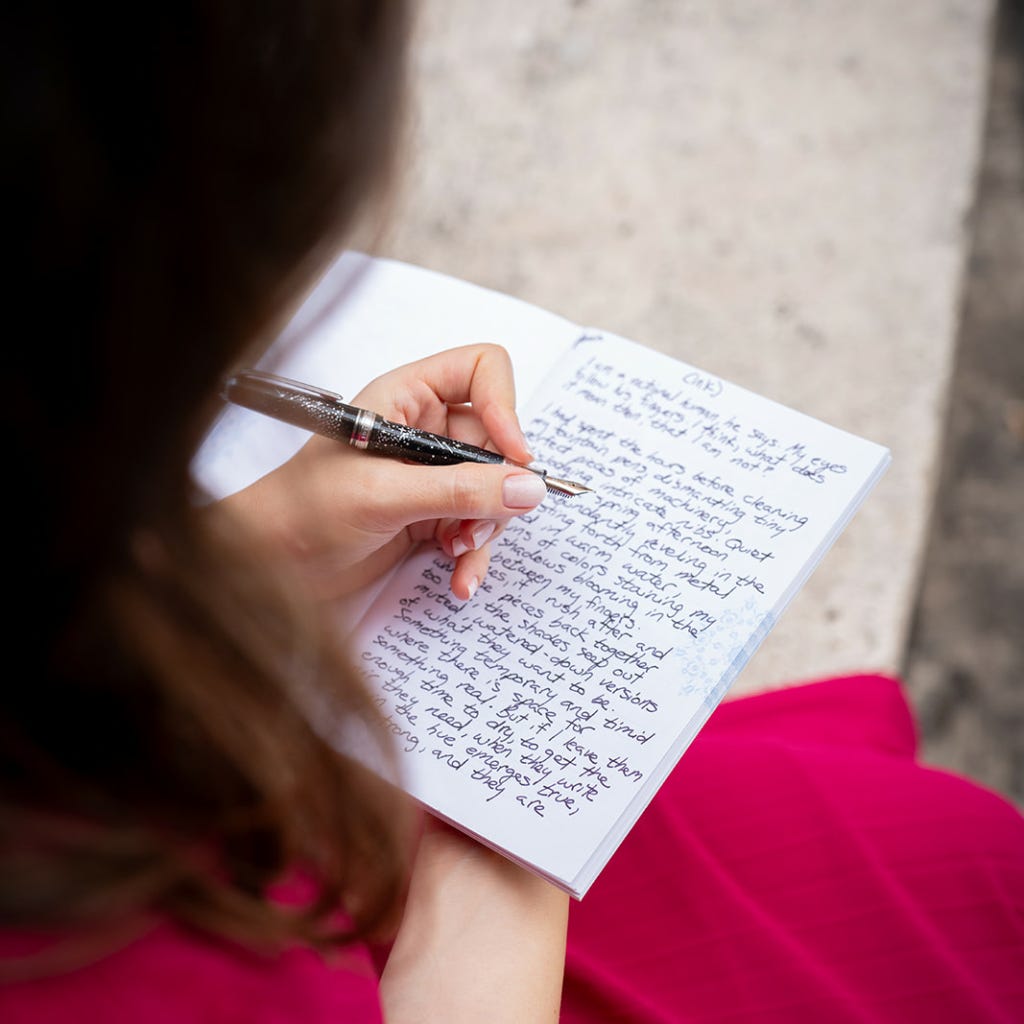 (ink)
I am a natural he says. My eyes
follow his fingers, I think, what does
it mean that I am not?
I had spent the hours before cleaning
my fountain pens, dismantling tiny
perfect pieces of machinery,
intricate nibs. Quiet
spring afternoon reveling in the
forth from metal
in warm water,
of colors staining my
shadows blooming in the
between my fingers.
if I rush after and
the pieces back together
too the shades seep out
muted, watered down versions
of what they want to be.
Something temporary and timid
where there's space for
something real. But if I leave them
enough time to dry, to get the
air they need, when they write
the hue emerges true,
strong, and they are